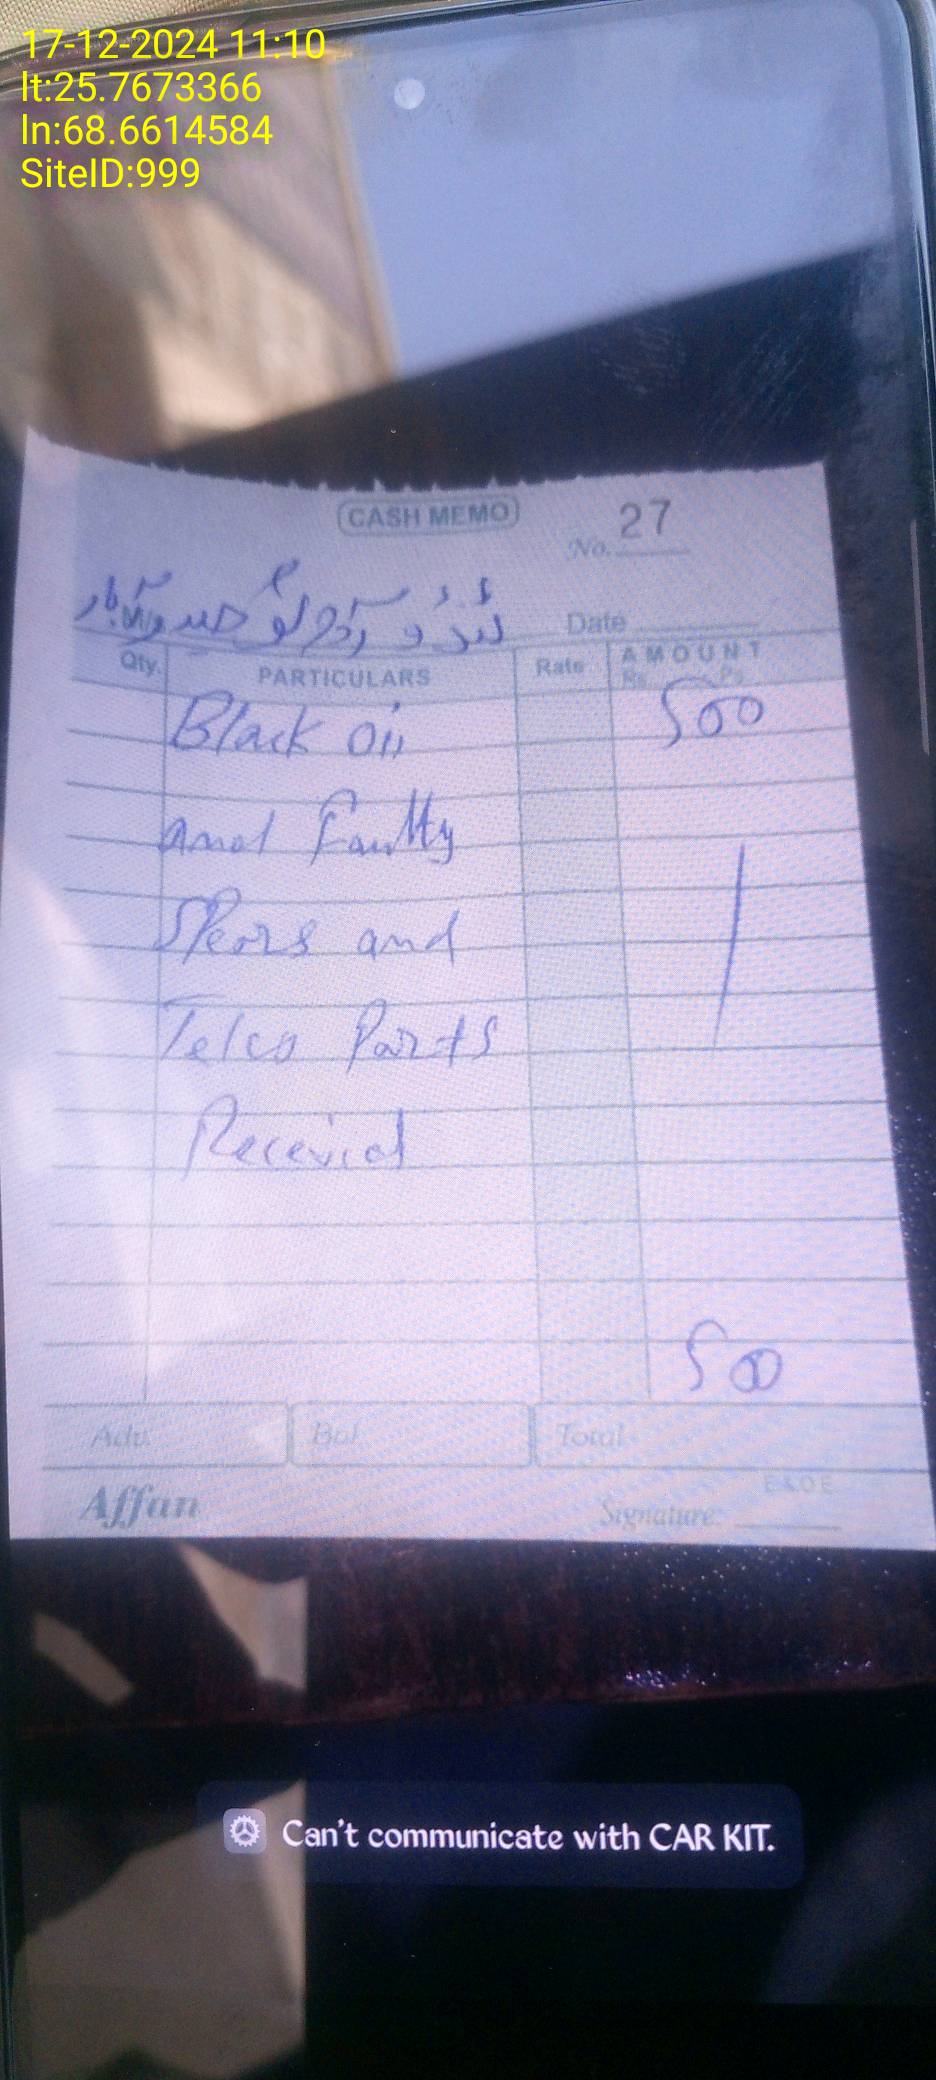 17-12-2024 11:10
lt:25.7673366
ln:68.6614584
SiteID:999
CASH MEMO
No. 27
M/s
Date
Qty. PARTICULARS Rate AMOUNT
Rs. Ps.
Black Oil 500
and Faulty
Spears and
Telco Parts
Recevied
500
Adv. Bal Total
E&OE
Affan Signature:
Can't communicate with CAR KIT.